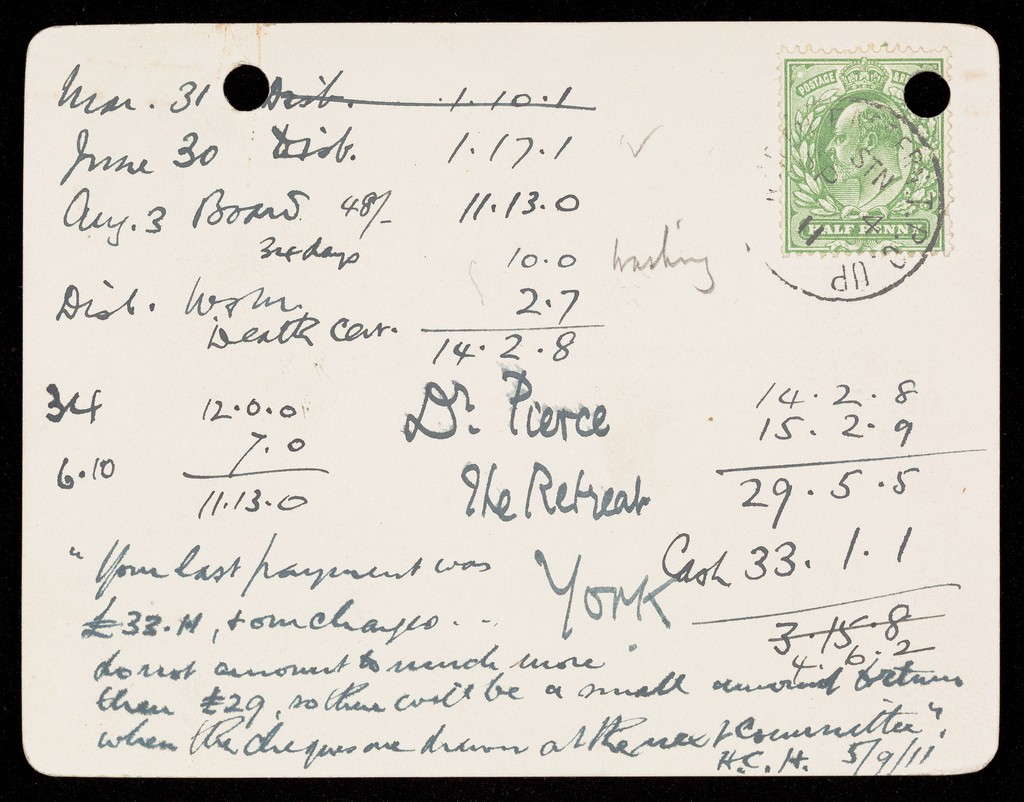 Mar. 31 Disb. 1.10.1
June 30 Disb. 1.17.1
Aug. 3 Board 48/- 11.13.0
34 days
10.0 washing
Disb. 2.7
Death Cert.
14.2.8
POSTAGE
HALF PENNY
STN
4
UP
11
34 12.0.0
7.0
6.10
11.13.0
Dr. Pierce
The Retreat
York
14.2.8
15.2.9
29.5.5
Cash 33.1.1
3.15.8
4.6.2
"Your last payment was
£33.11, & our charges ...
do not amount to much more
than £29, so there will be a small amount to return
when the cheques are drawn at the next Committee".
H.C.H. 5/9/11